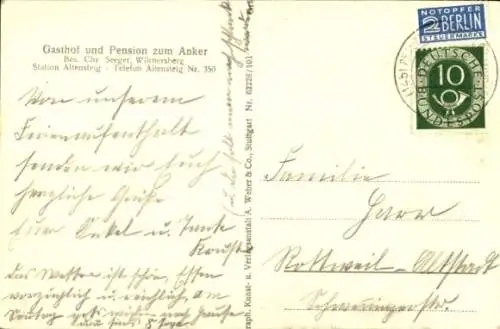 Gasthof und Pension zum Anker
Bes. Chr. Seeger, Wörnersberg
Station Altensteig - Telefon Altensteig Nr. 350
Von unserem
Ferienaufenthalt
senden wir Euch
herzliche Grüße
Euer Onkel u. Tante
Das Wetter ist schön, Essen
vorzüglich u. reichlich, am
Sonntag geht's wieder nach Hause
graph. Kunst- u. Verlagsanstalt A. Weber & Co., Stuttgart Nr. 62228/101
NOTOPFER
2 BERLIN
STEUERMARKE
DEUTSCHE
BUNDESPOST
10
Familie
Herr
Rottweil-Altstadt